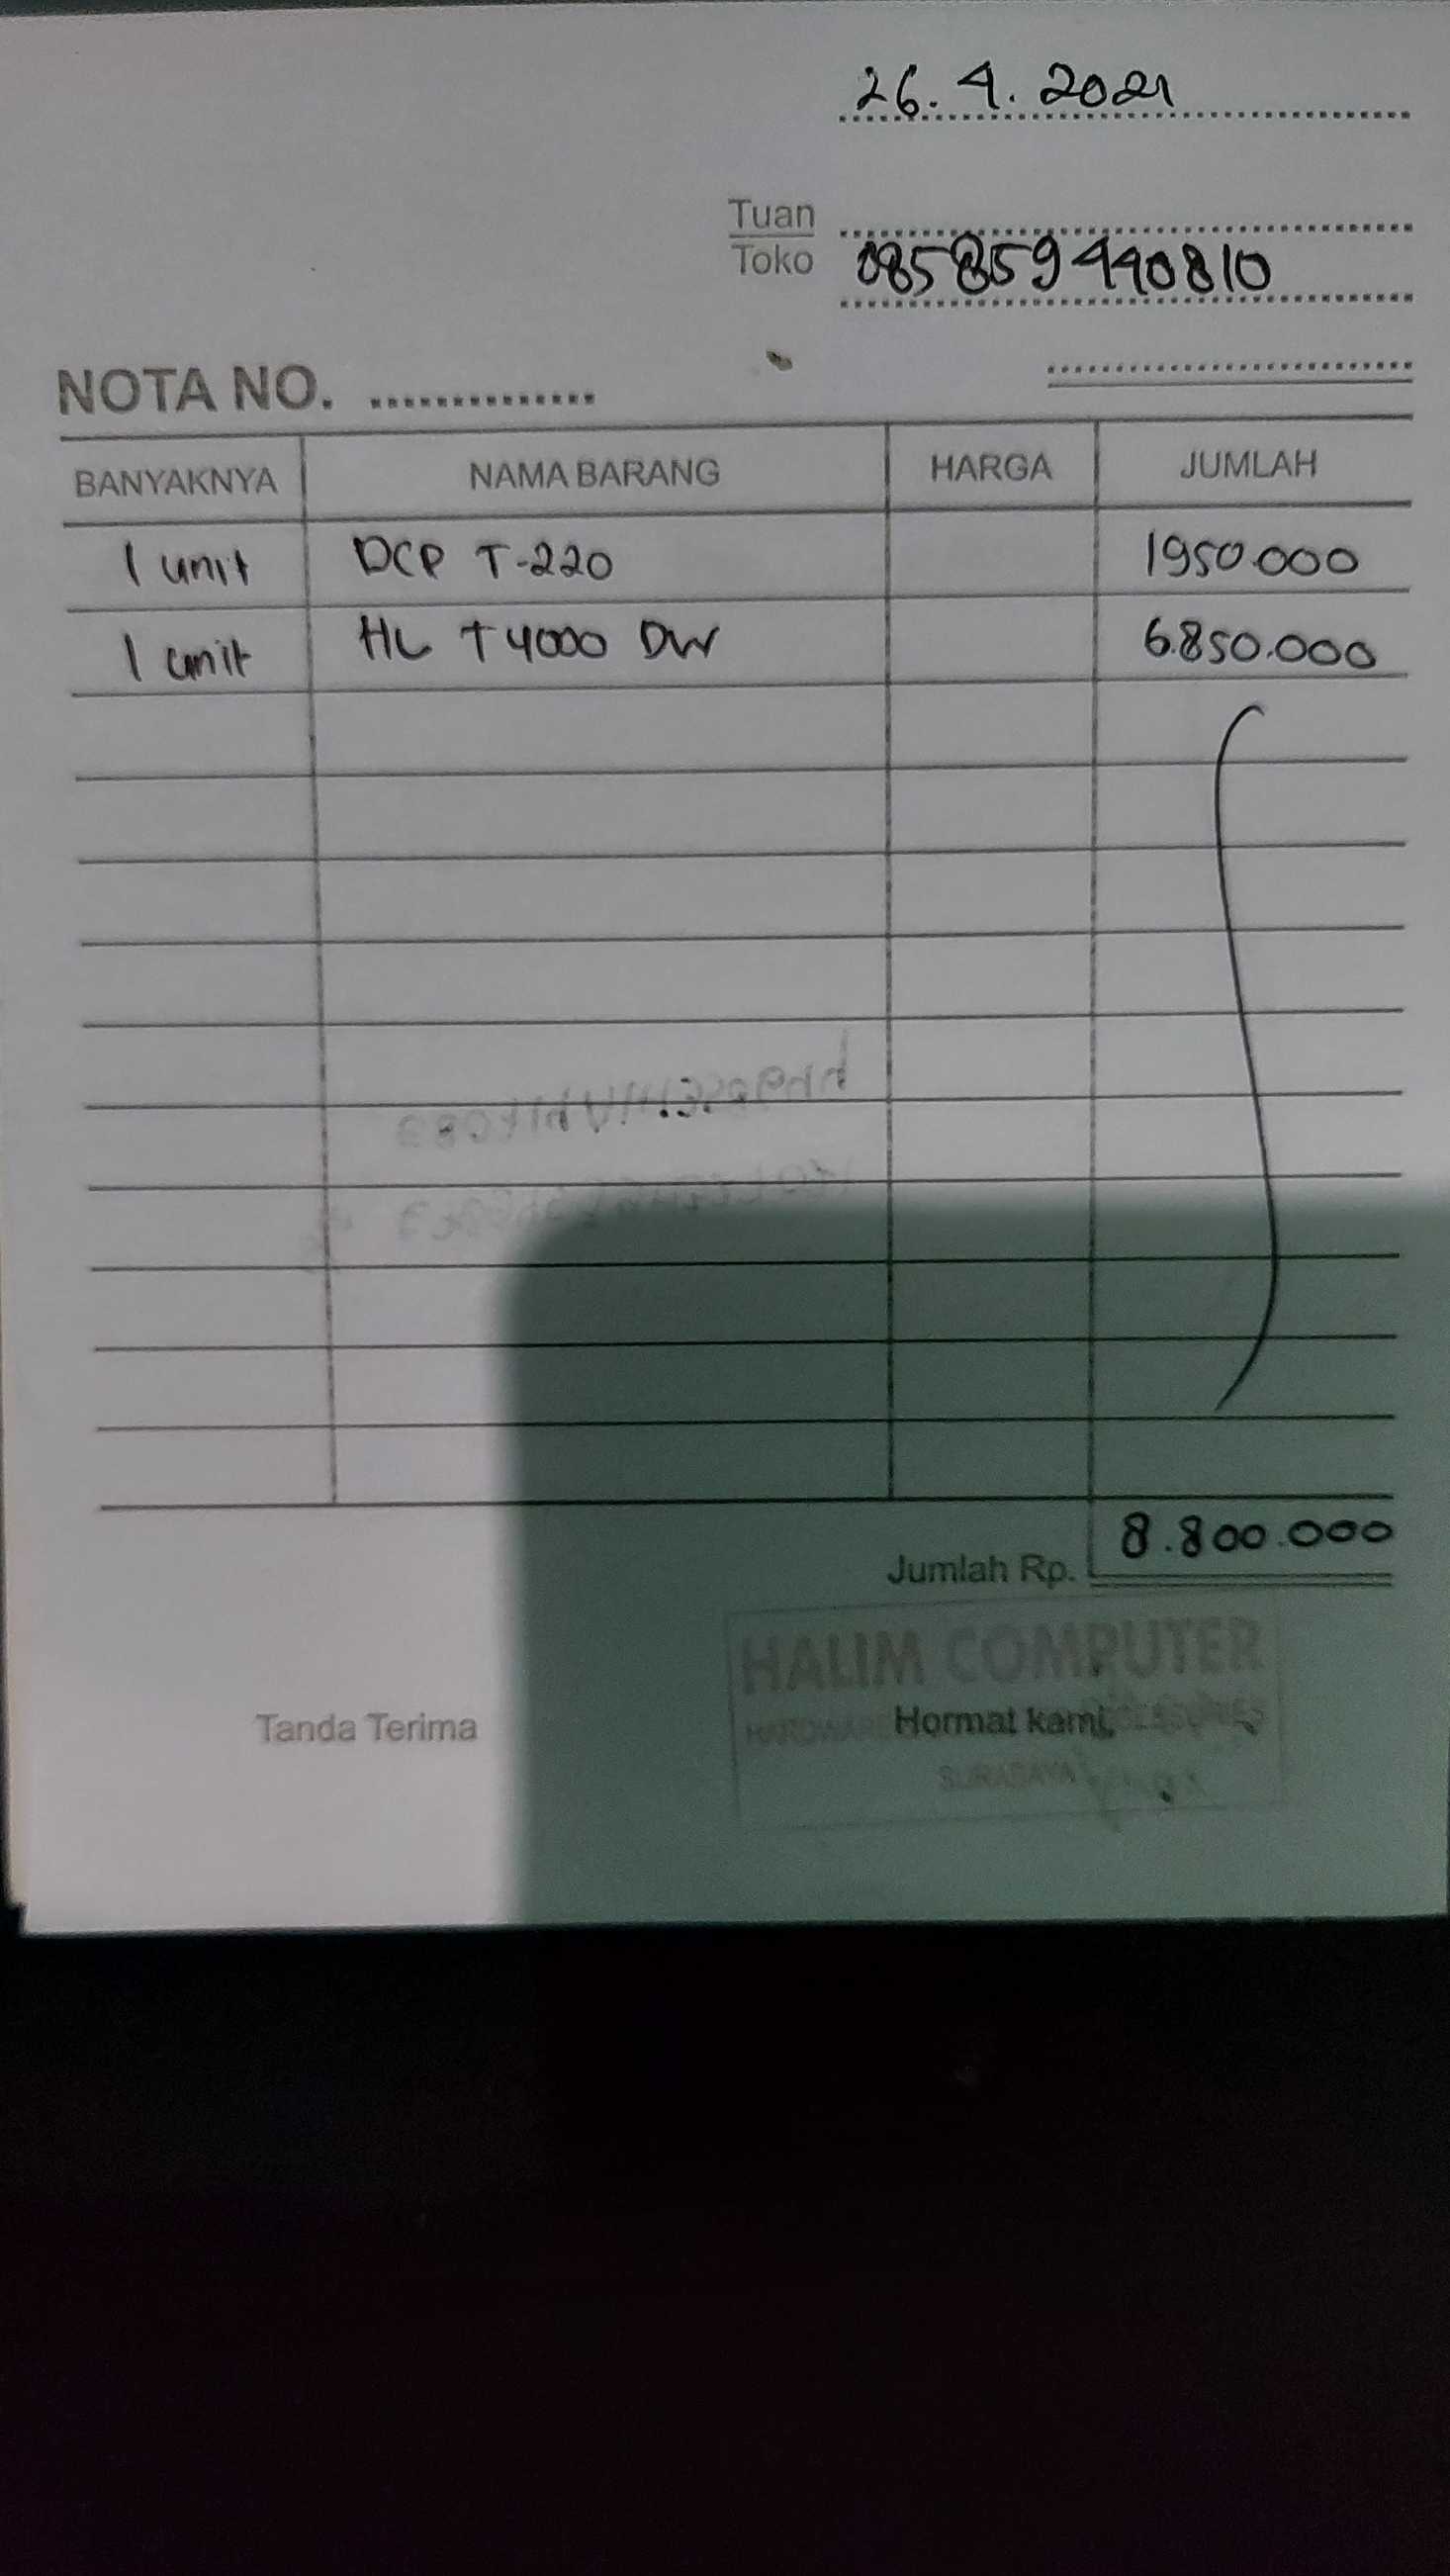 26.4.2021
Tuan
Toko 085859440810
NOTA NO. ..............
BANYAKNYA NAMA BARANG HARGA JUMLAH
1 unit DCP T-220 1950.000
1 unit HL T4000 DW 6.850.000
Jumlah Rp. 8.800.000
HALIM COMPUTER
Tanda Terima Hormat kami,
HARDWARE
SURABAYA